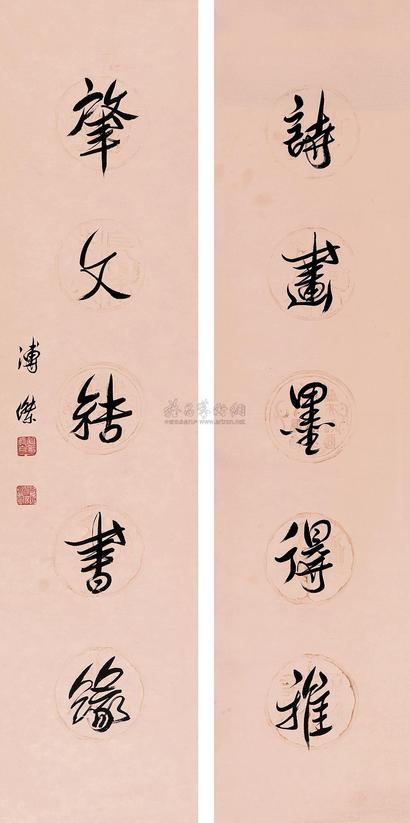 詩畫墨得雅
肇文結書緣
溥傑
雅昌藝術網
www.artron.net